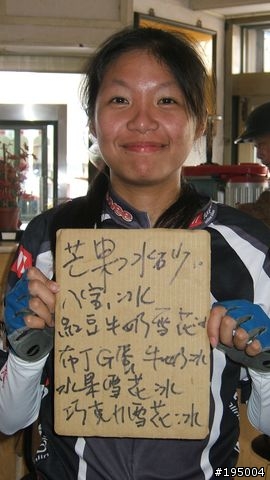 芒果冰沙
八宝冰
紅豆牛奶雪花冰
布丁G蛋牛奶冰
水果雪花冰
巧克力雪花冰
#195004